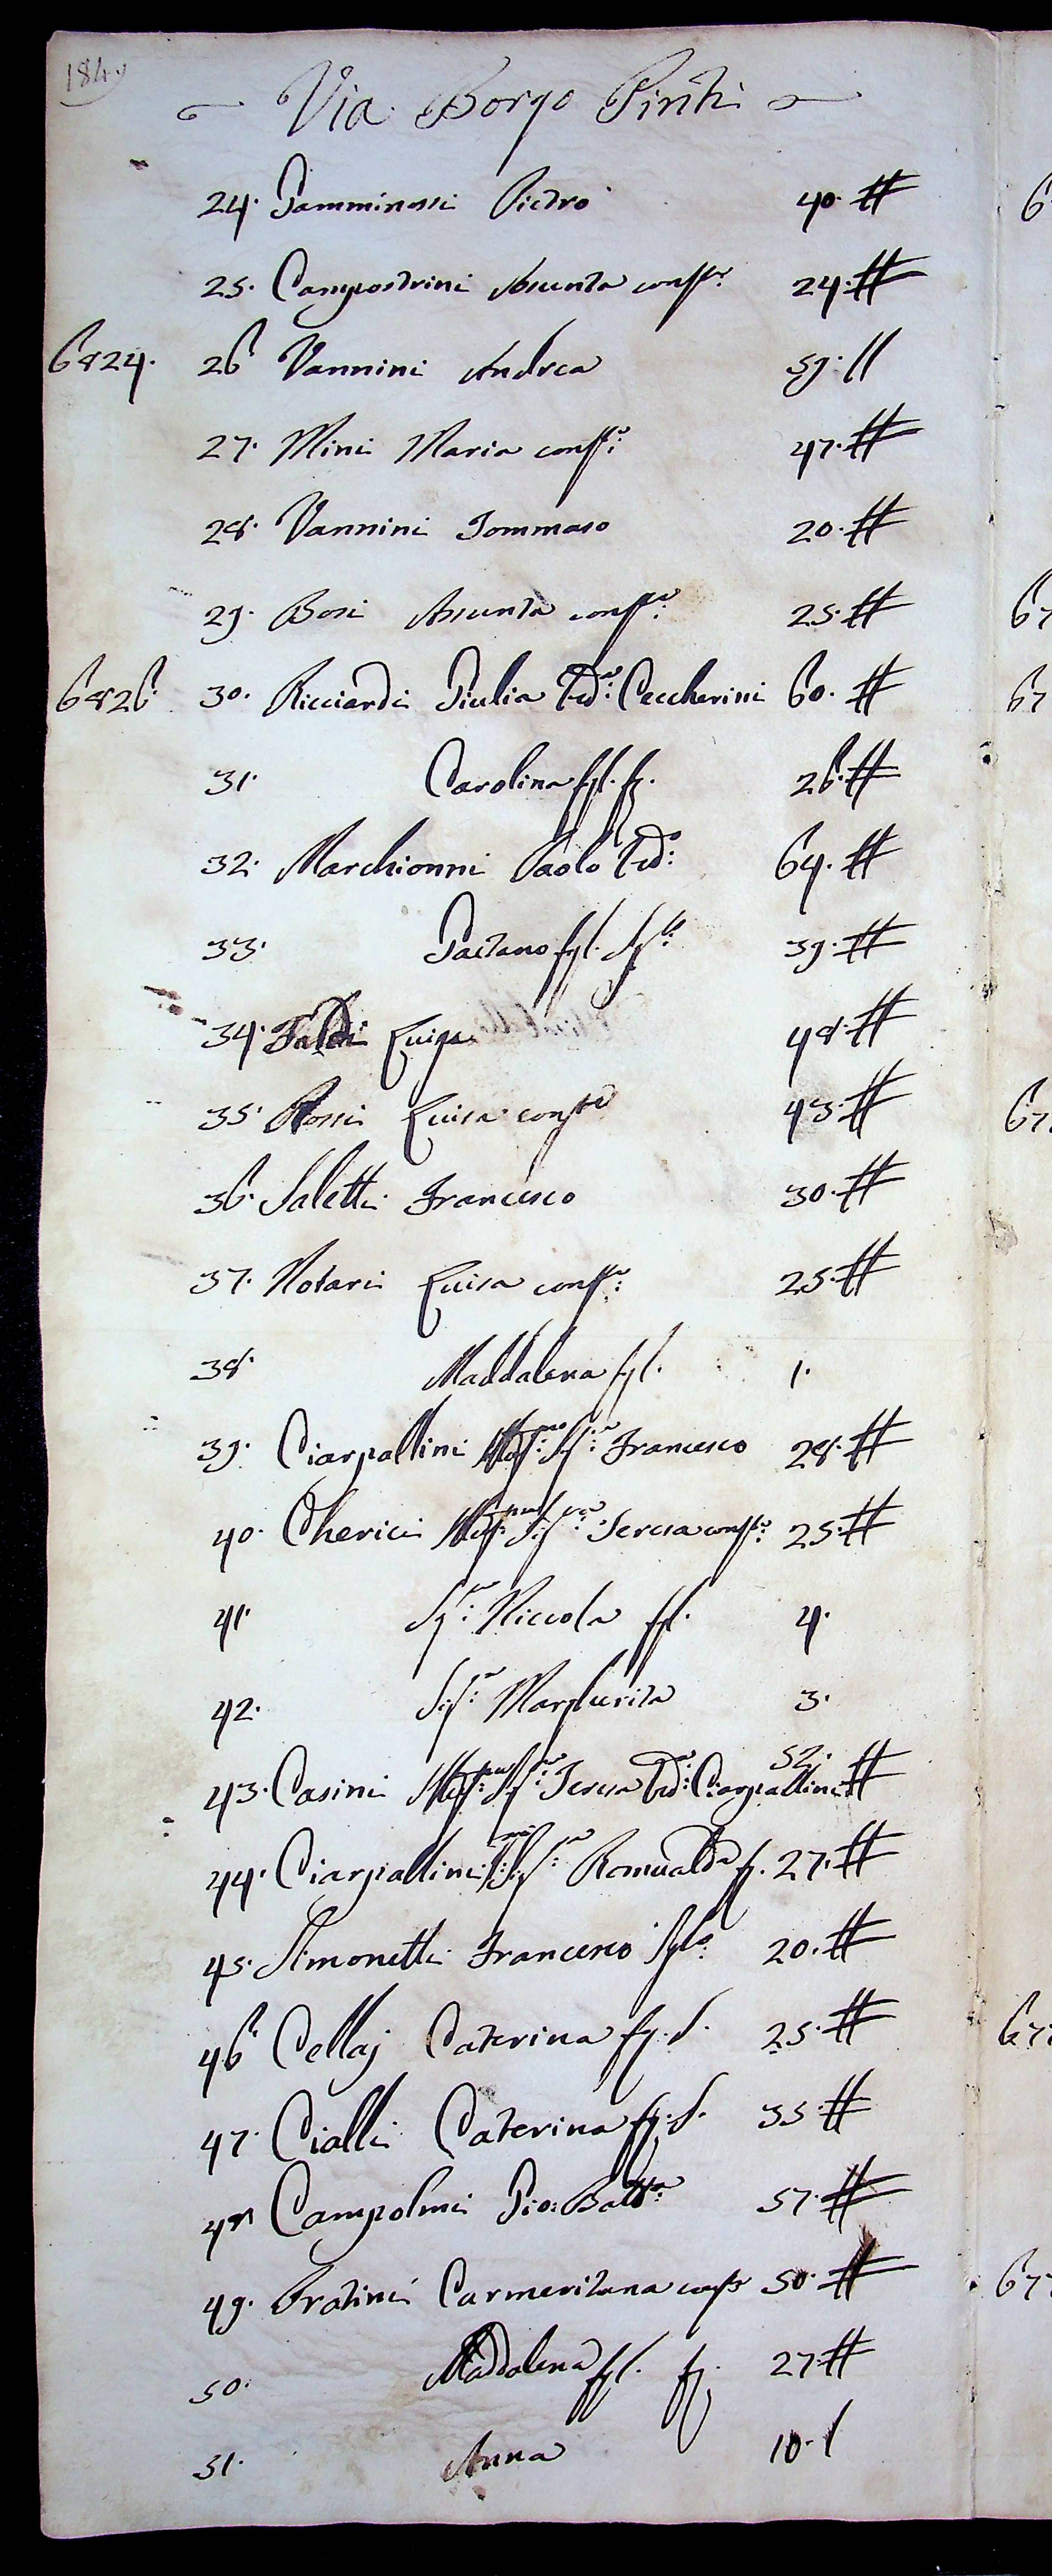 1849
Via Borgo Pinti
24. Gamminossi Pietro 40. #
25. Campostrini Assunta conse. 24. #
6824. 26 Vannini Andrea 59. //
27. Mini Maria conse. 47. #
28. Vannini Tommaso 20. #
29. Bosi Assunta conse. 25. #
6826. 30. Ricciardi Giulia Ved: Ceccherini 60. #
31. Carolina figl. f. 26. #
32. Marchionni Paolo Ved: 64. #
33. Gaetano figl. 39. #
34. Faldi Luigi 48. #
35. Rossi Luisa conse 43. #
36. Saletti Francesco 30. #
37. Notari Luisa conse: 25. #
38. Maddalena figl. 1.
39. Ciarpallini Francesco 28. #
40. Cherici Teresa conse: 25. #
41. Niccola figl. 4.
42. Margherita 3.
43. Casini Teresa Ved: Ciarpallini 52. #
44. Ciarpallini Romualda f. 27. #
45. Simonetti Francesco 20. #
46 Cellaj Caterina f. S. 25. #
47. Cialli Caterina f. S. 35. #
48 Campolmi Gio: Batta 57. #
49. Fratini Carmeritana conse 50. #
50. Maddalena figl. f. 27. #
51. Anna 10. /